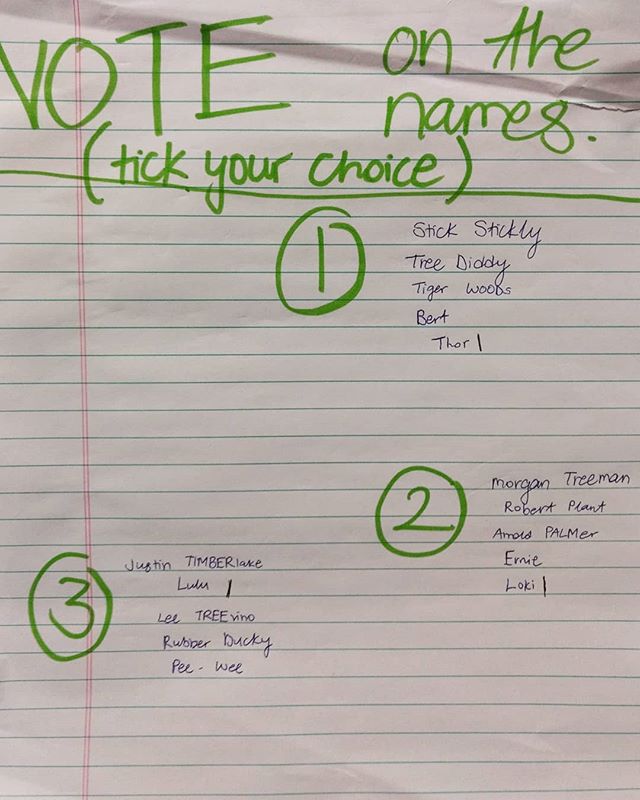 VOTE on the
names.
(tick your choice)
1
Stick Stickly
Tree Diddy
Tiger Woods
Bert
Thor |
2
Morgan Treeman
Robert Plant
Arnold PALMer
Ernie
Loki |
3
Justin TIMBERlake
Lulu |
Lee TREEvino
Rubber Ducky
Pee-Wee